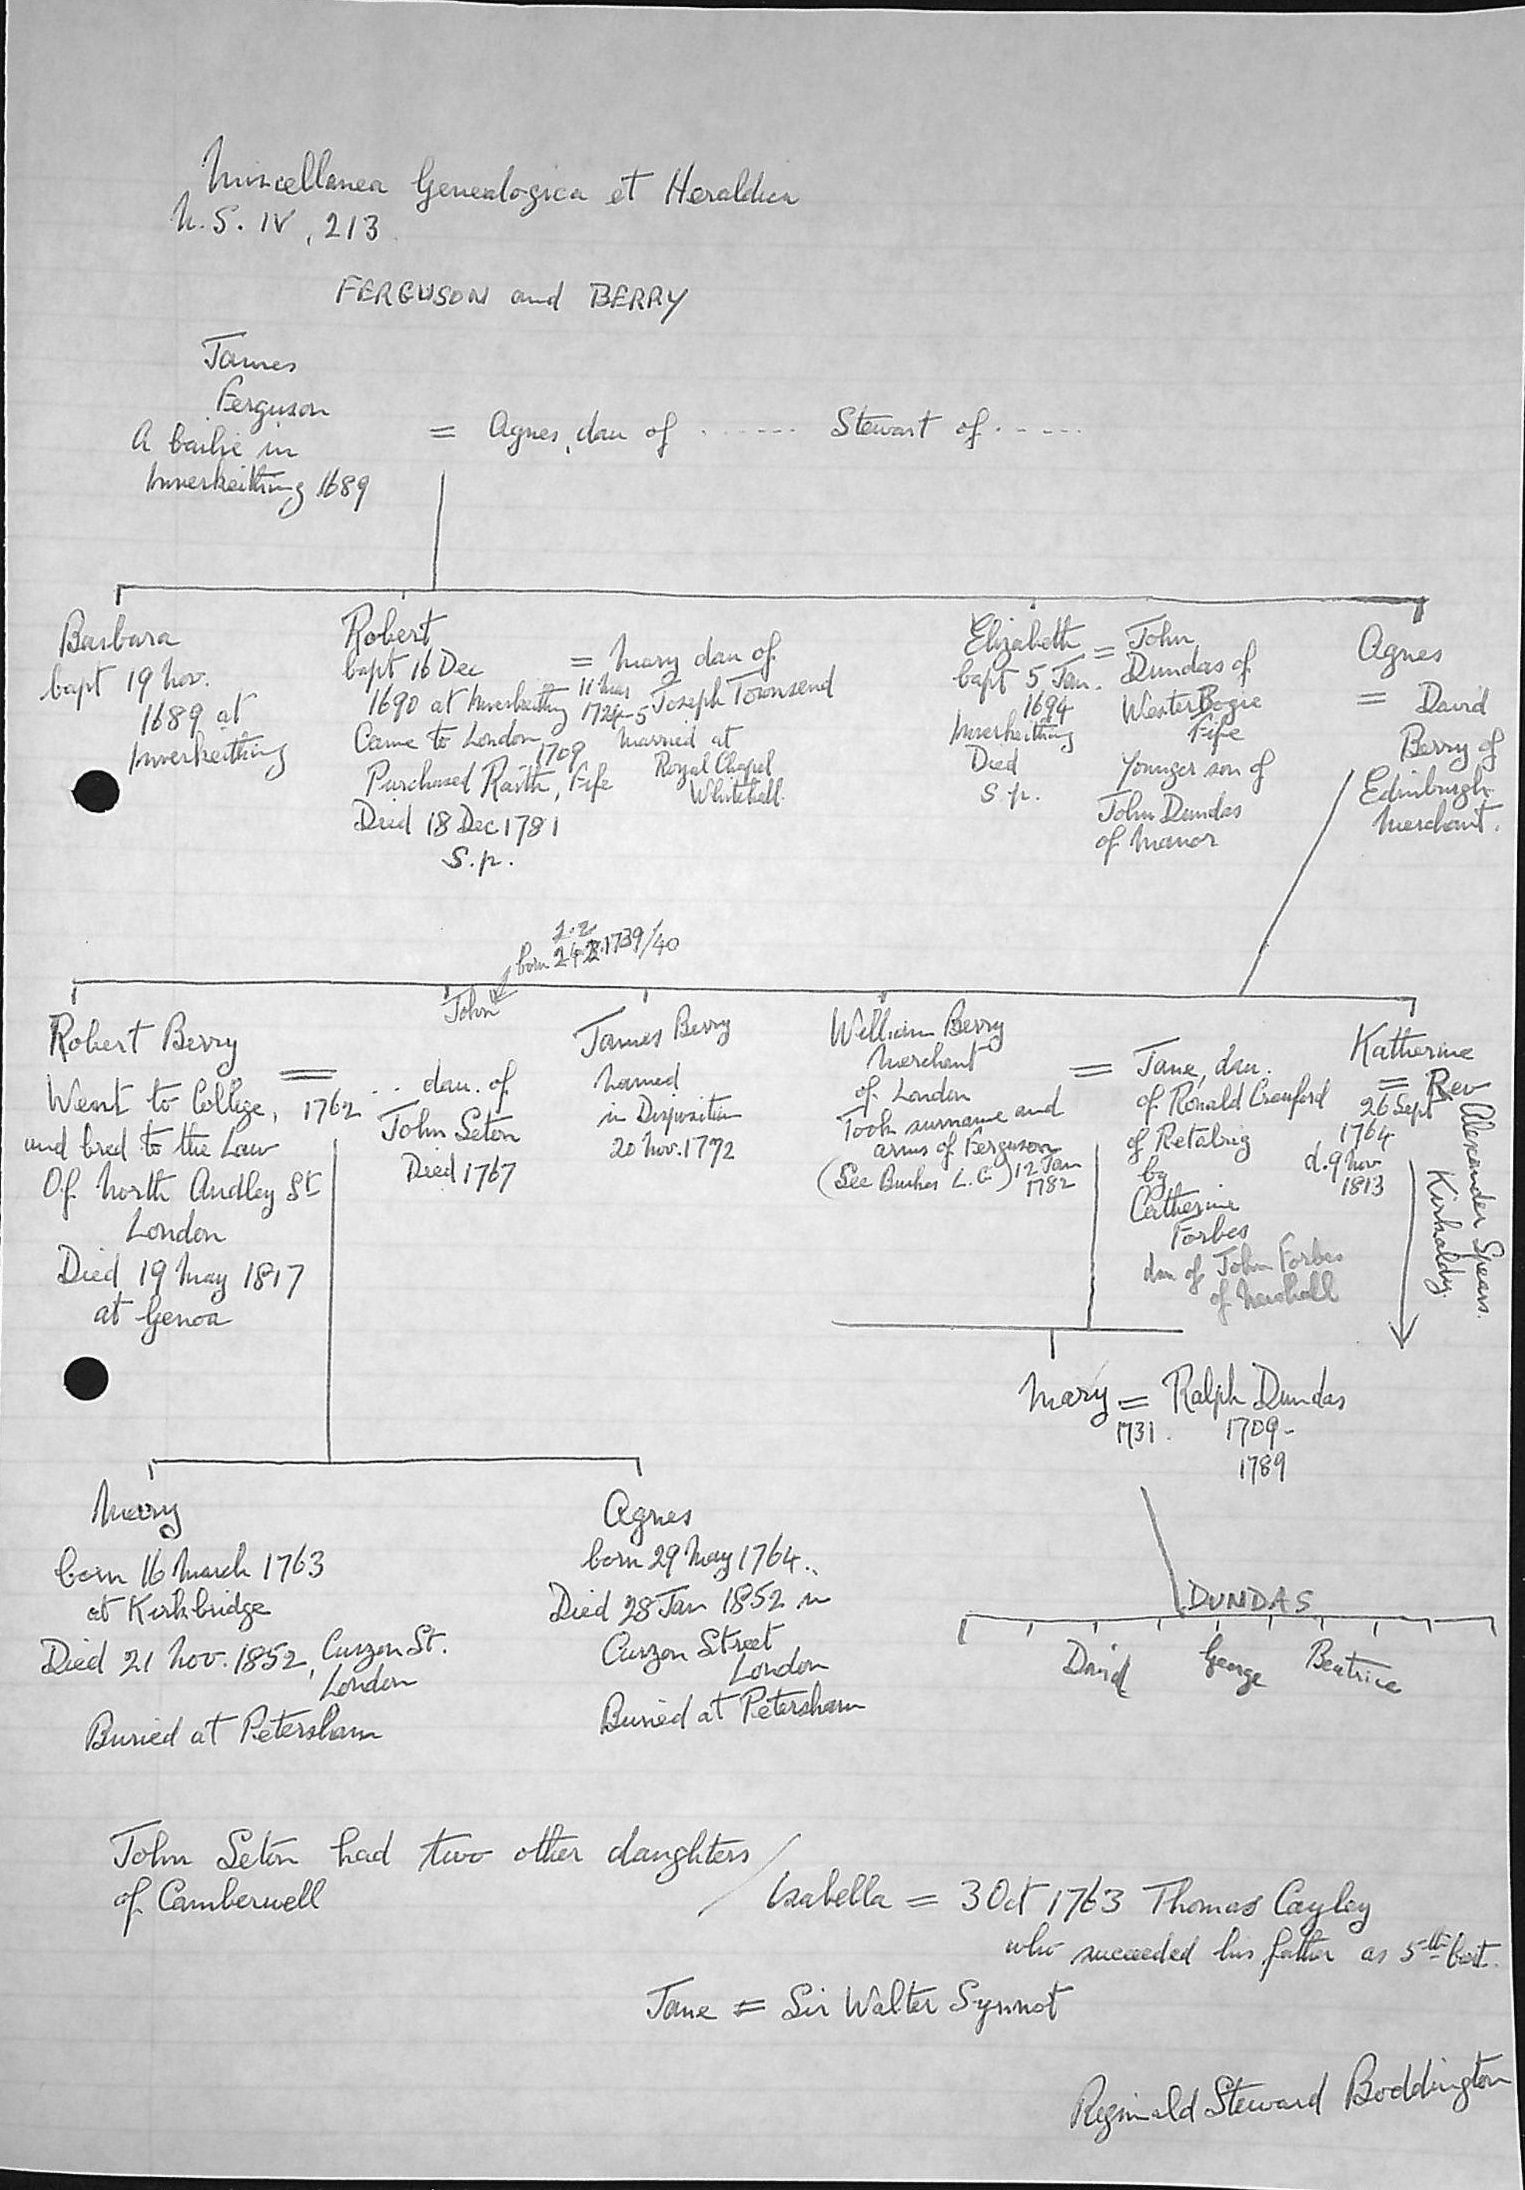 Miscellanea Genealogica et Heraldica
N.S. IV, 213
FERGUSON and BERRY
James
Ferguson
A bailie in
Inverkeithing 1689
= Agnes, dau of ....... Stewart of .....
Barbara
bapt 19 Nov.
1689 at
Inverkeithing
Robert
bapt 16 Dec
1690 at Inverkeithing
Came to London
1709
Purchased Raith, Fife
Died 18 Dec 1781
S.p.
= Mary dau of
11 Mar
1724-5 Joseph Townsend
Married at
Royal Chapel
Whitehall.
Elizabeth
bapt 5 Jan.
1694
Inverkeithing
Died
S.p.
= John
Dundas of
Wester Bogie
Fife
Younger son of
John Dundas
of Manor
Agnes
= David
Berry of
Edinburgh
Merchant.
2.2.
born 1739/40
Robert Berry
Went to College,
and bred to the Law
Of North Audley St
London
Died 19 May 1817
at Genoa
=
1762
... dau. of
John Seton
Died 1767
John
James Berry
named
in Disposition
20 Nov. 1772
William Berry
Merchant
of London
Took surname and
arms of Ferguson
(See Burkes L.G.) 12 Jan
1782
= Jane, dau.
of Ronald Craufurd
of Retalrig
by
Catherine
Forbes
dau of John Forbes
of Newhall
Katherine
= Rev
26 Sept
1764
d. 9 Nov
1813
Alexander Spears.
Kirkaldy.
Mary = Ralph Dundas
1731. 1709-
1789
Mary
born 16 March 1763
at Kirkbridge
Died 21 Nov. 1852, Curzon St.
London
Buried at Petersham
Agnes
born 29 May 1764..
Died 28 Jan 1852 in
Curzon Street
London
Buried at Petersham
DUNDAS
David George Beatrice
John Seton had two other daughters
of Camberwell
Isabella = 3 Oct 1763 Thomas Cayley
who succeeded his father as 5th bart.
Jane = Sir Walter Synnot
Reginald Steward Boddington